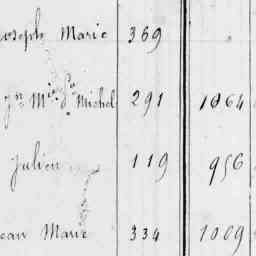 Joseph Marie 369
Jn Mie Sn Michel 291 1064
Julien 119 956
Jean Marie 334 1009